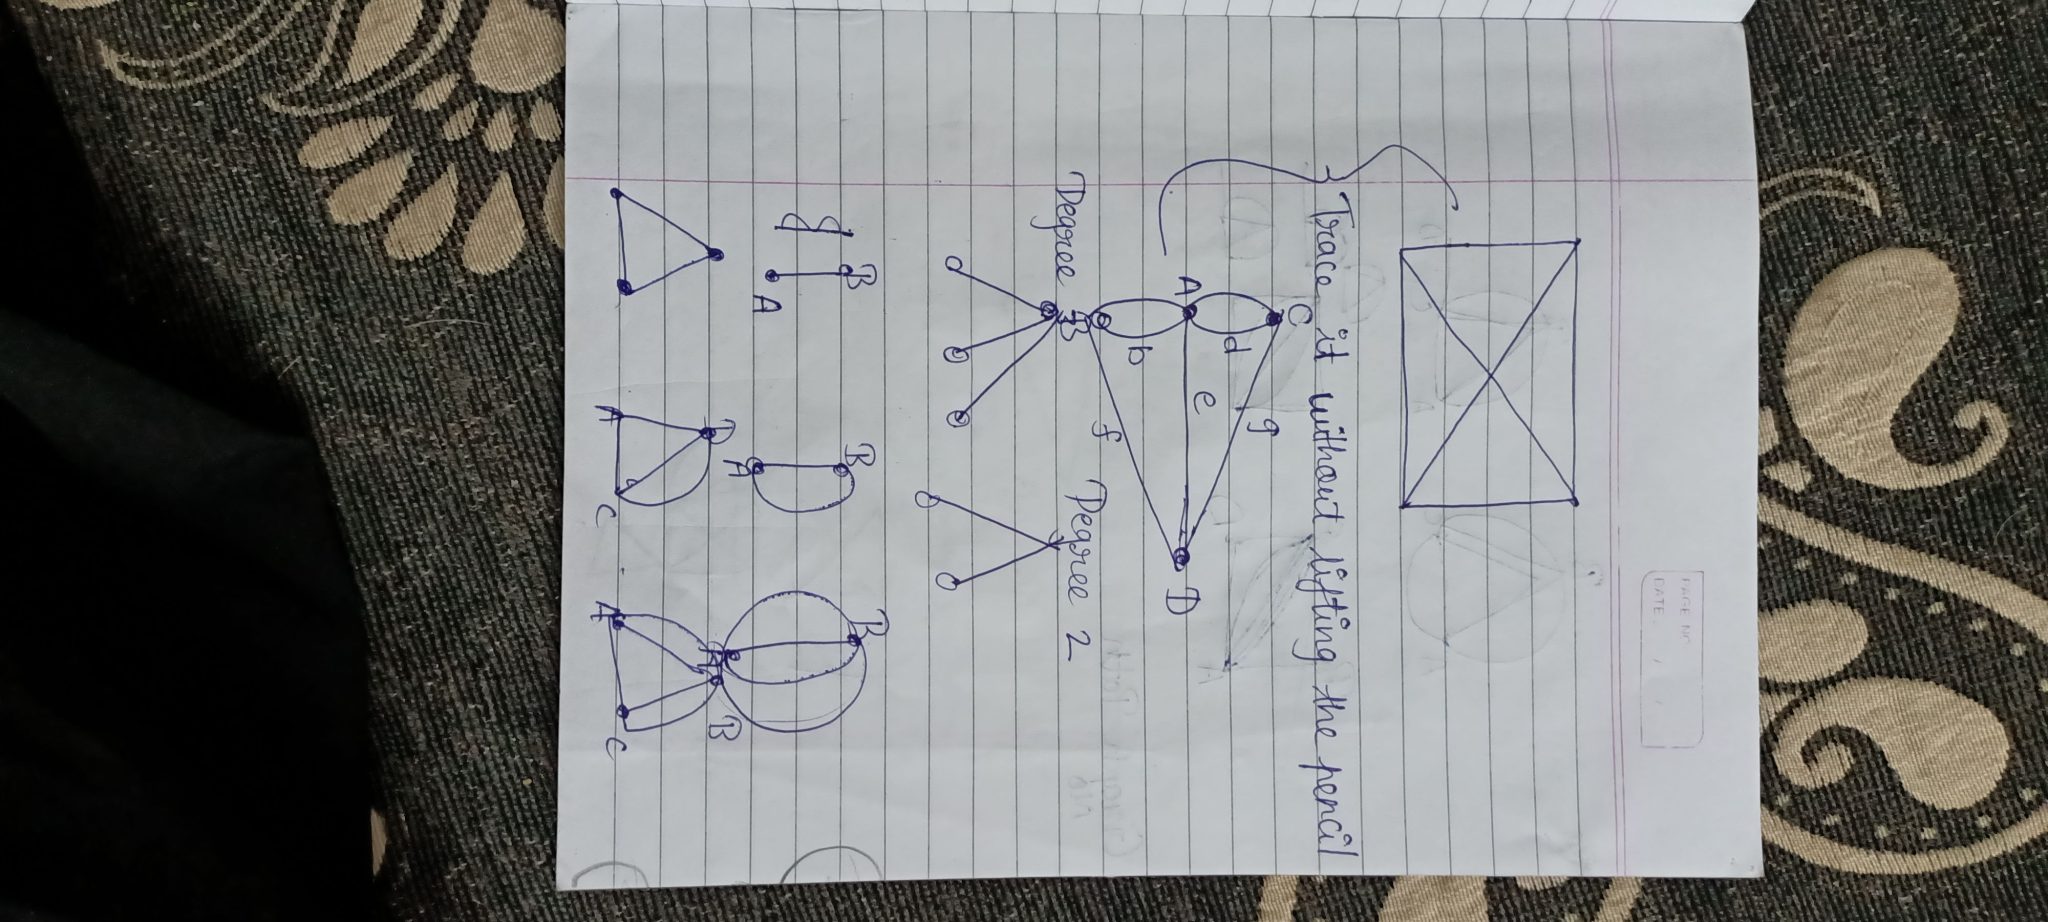 PAGE NO.
DATE
Trace it without lifting the pencil
C
d
g
A
e
D
b
B
f
Degree 3
Degree 2
B
A
B
A
B
A
D
A
C
B
A
C